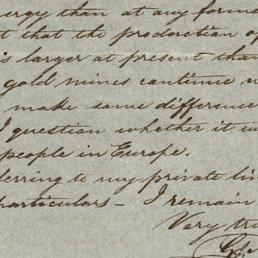 energy than at any forme
t that the production of
is larger at present than
gold mines continue
make some difference
I question whether it w
people in Europe.
ferring to my private lin
particulars — I remain
Very tru